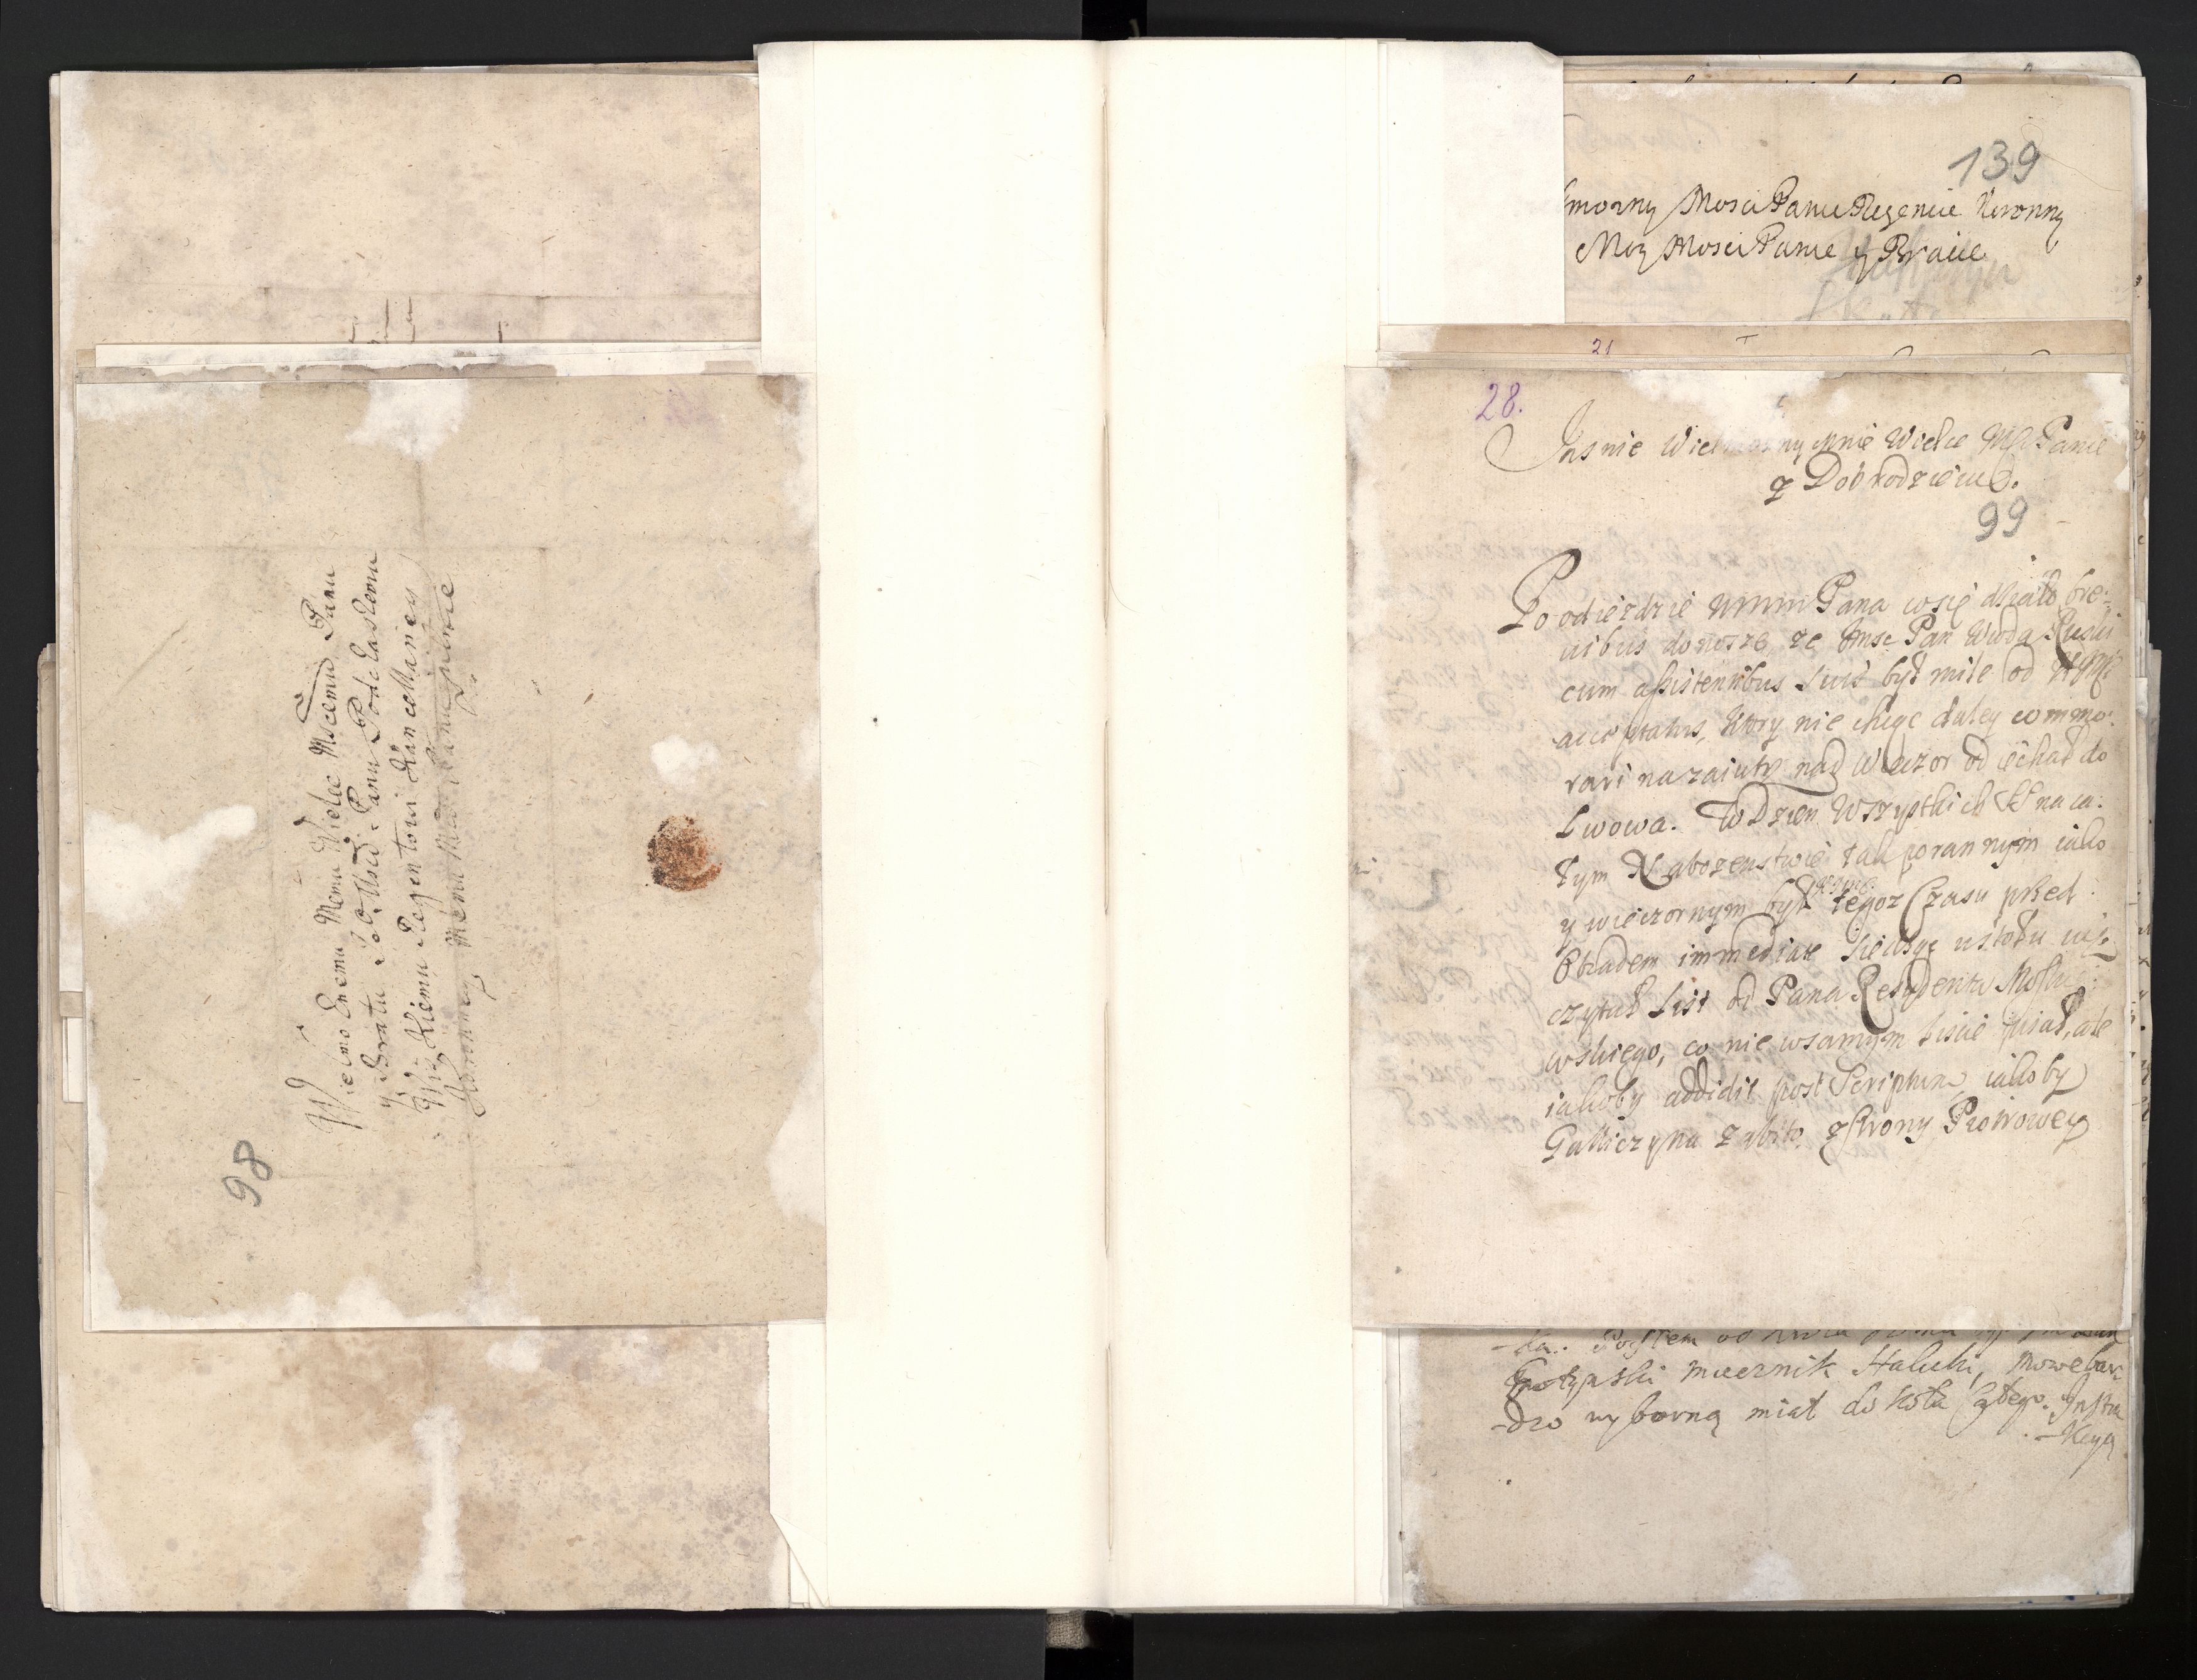 98
Wielmo Enemu Memu Wielce Mściemu Panu
y Bratu Jego Mści Panu Podczaszemu
Kiemu Regentowi Kancellaryey
Koronney Memu Mści Panu pilne
139
morny Mosci Panie Regencie Koronny
Moy Mosci Panie y Bracie
21
28.
Jasnie Wiel ny mnie Wielce Mści Panie
y Dobrodzieiu.
99
Po odieździe Wmm Pana co się działo bre:
uibus donoszę, ze Imsc Pan Wwda Ruski
cum assistentibus suis był mile od
acceptatus, ktory nie chcąc daley commo:
rari nazaiutrz nad Wieczor odiechał do
Lwowa. W Dzien Wszystkich SS na ca:
łym Nabozenstwie tak porannym iako
y wieczornym był tegoz Czasu przed
Obiadem immediate siedząc u stołu
czytał List od Pana Resydenta Mosk:
wskiego, co nie w samym liscie pisał, ale
iakoby addidit post Scriptum, iakoby
Galliczyna zabito, z strony Piotrowey
miecznik Halicki, mowe bar:
dzo wyborną miał do Koła Całego. Instru
kcyą